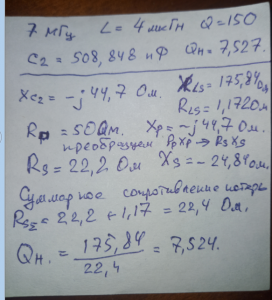 7 мгц L = 4 мкГн Q=150
C2 = 508,848 пФ Qн= 7,527.
Xc2 = -j 44,7 Ом. XLs = 175,84 Ом
RLs = 1,172 Ом
Rр = 50 Ом. Xр = -j 44,7 Ом.
преобразуем РрХр → Rs Xs
Rs = 22,2 Ом Xs = -24,84 Ом.
Суммарное сопротивление потерь
RsΣ = 22,2 + 1,17 = 22,4 Ом.
Qн. = 175,84 / 22,4 = 7,524.